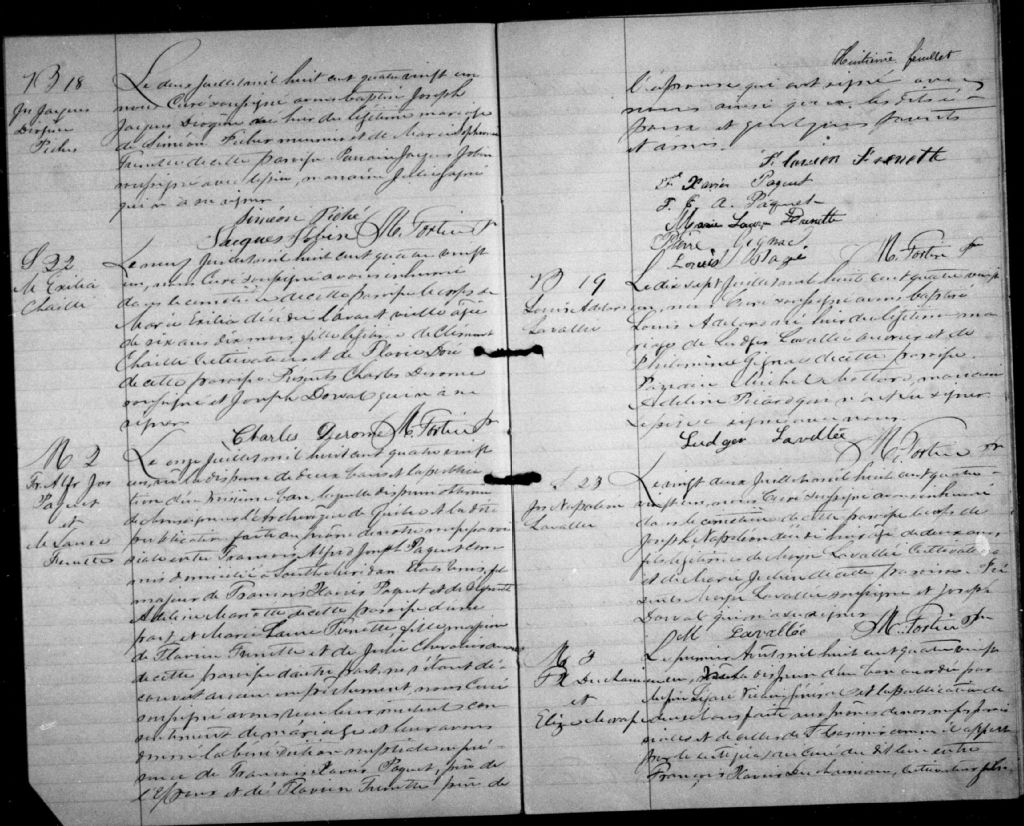 B 18
Jos Jacques
Diogène
Piché
Le deux Juillet mil huit cent quatre vingt un
nous Curé soussigné avons baptisé Joseph
Jacques Diogène né hier du légitime mariage
de Siméon Piché menuisier et de Marie
Frenette de cette paroisse Parrain Jacques Jobin
soussigné avec le père, marraine Julie
qui n'a su signer
Siméon Piché
Jacques Jobin M. Fortin Ptr
S 22
M Exilia
Chaillé
Le neuf Juillet mil huit cent quatre vingt
un, nous Curé soussigné avons inhumé
dans le cimetière de cette paroisse le corps de
Marie Exilia décédée l'avant veille agée
de six ans dix mois fille légitime de Clément
Chaillé Cultivateur et de Flavie Doré
de cette paroisse. Présents Charles Derome
soussigné et Joseph Dorval qui n'a su
signer
Charles Derome M. Fortin Ptr
M 2
Fr. Alfr Jos
Paquet
et
M Laure
Frenette
Le onze Juillet mil huit cent quatre vingt
un, vu la dispense de deux bans et la publica
tion du troisième ban, laquelle dispense obtenue
de Monseigneur l'Archevêque de Québec et la dite
publication faite au prône de notre messe parois
siale entre François Alfred Joseph Paquet Com
mis domicilié à South Meridan Etats Unis, fils
majeur de François Xavier Paquet et de
Adeline Marcotte de cette paroisse d'une
part, et Marie Laure Frenette, fille majeure
de Flavien Frenette et de Julie Chevalier
de cette paroisse d'autre part, ne s'étant dé
couvert aucun empêchement, nous Curé
soussigné avons reçu leur mutuel con
sentement de mariage et leur avons
donné la bénédiction nuptiale en pré
sence de François Xavier Paquet, père de
l'Epoux et de Flavien Frenette père de
Huitième feuillet
l'épouse qui ont signé avec
nous ainsi que les
et quelques parents
et amis.
F. lavien Frenette
F. Xavier Paquet
F. J. A. Paquet
Marie Laure Frenette
Pierre Gignac
Louis M. Fortin Ptr
B 19
Louis Adelard
Lavallée
Le dix sept Juillet mil huit cent quatre vingt
un, nous Curé soussigné avons baptisé
Louis Adelard né hier du légitime ma
riage de Ludger Lavallée ouvrier et de
Philomène Gignac de cette paroisse.
Parrain Michel Mottard, marraine
Adeline Picard qui n'ont su signer
Le père a signé avec nous.
Ludger Lavallée M. Fortin Ptr
S 23
Jos Napoléon
Lavallée
Le vingt deux Juillet mil huit cent quatre
vingt un, nous Curé soussigné avons inhumé
dans le cimetière de cette paroisse le corps de
Joseph Napoléon décédé hier agé de deux ans
fils légitime de Moyse Lavallée Cultivateur
et de Marie de cette paroisse. Pré
sents Moyse Lavallée soussigné et Joseph
Dorval qui n'a su signer
M Lavallée M. Fortin Ptr
M. 3
FX Duchaineau
et
Eliza
Le premier Août mil huit cent quatre vingt
un, vu la dispense d'un ban accordée par
Vicaire général et la publication de
deux bans faite aux prônes de nos messes parois
siales et de celles de comme il appert
par le certificat du curé du dit lieu entre
François Xavier Duchaineau, cultivateur fils